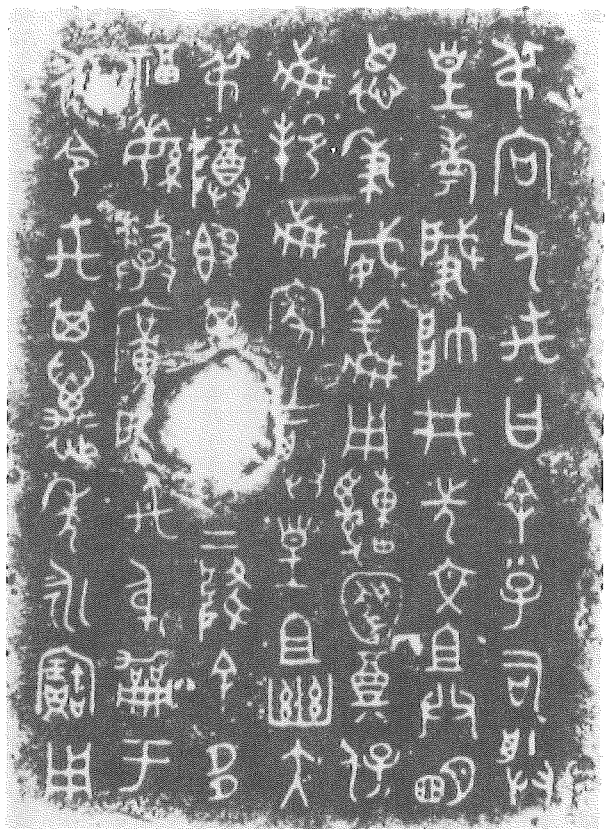 弔向父禹曰余小子司朕
皇考肇帥井先文且共明
德秉威義用䌛𤔲奠保
我邦我家乍朕皇且幽大
弔尊簋其嚴在上降余多
福繁釐廣啓禹身擢于
永命禹其萬年永寶用